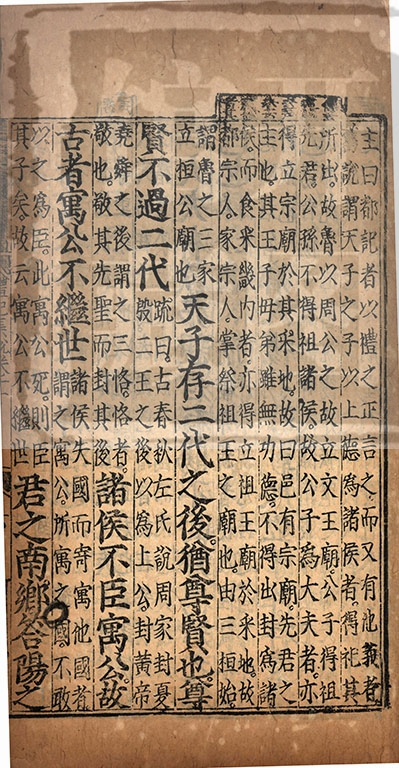 主曰都記者以禮之正言之而又有他義者
說謂天子之子以上德為諸侯者得祀其
所出故魯以周公之故立文王廟公子得祖
先君公孫不得祖諸侯故公子為大夫者亦
得立宗廟於其采地故曰邑有宗廟先君之
主也其王子母弟雖無功德不得出封為諸
侯而食采畿内者亦得立祖王廟於采地故
都宗人家宗人掌祭祖王之廟也由三桓始
謂魯之三家
立桓公廟也
天子存二代之後猶尊賢也尊
賢不過二代
疏曰古春秋左氏說周家封夏
殷二王之後以為上公封黃帝
堯舜之後謂之三恪恪者
敬也敬其先聖而封其後
諸侯不臣寓公故
古者寓公不繼世
諸侯失國而寄寓他國者
謂之寓公所寓之國不敢
以之為臣此寓公死則臣
其子矣故云寓公不繼世
君之南鄉答陽之